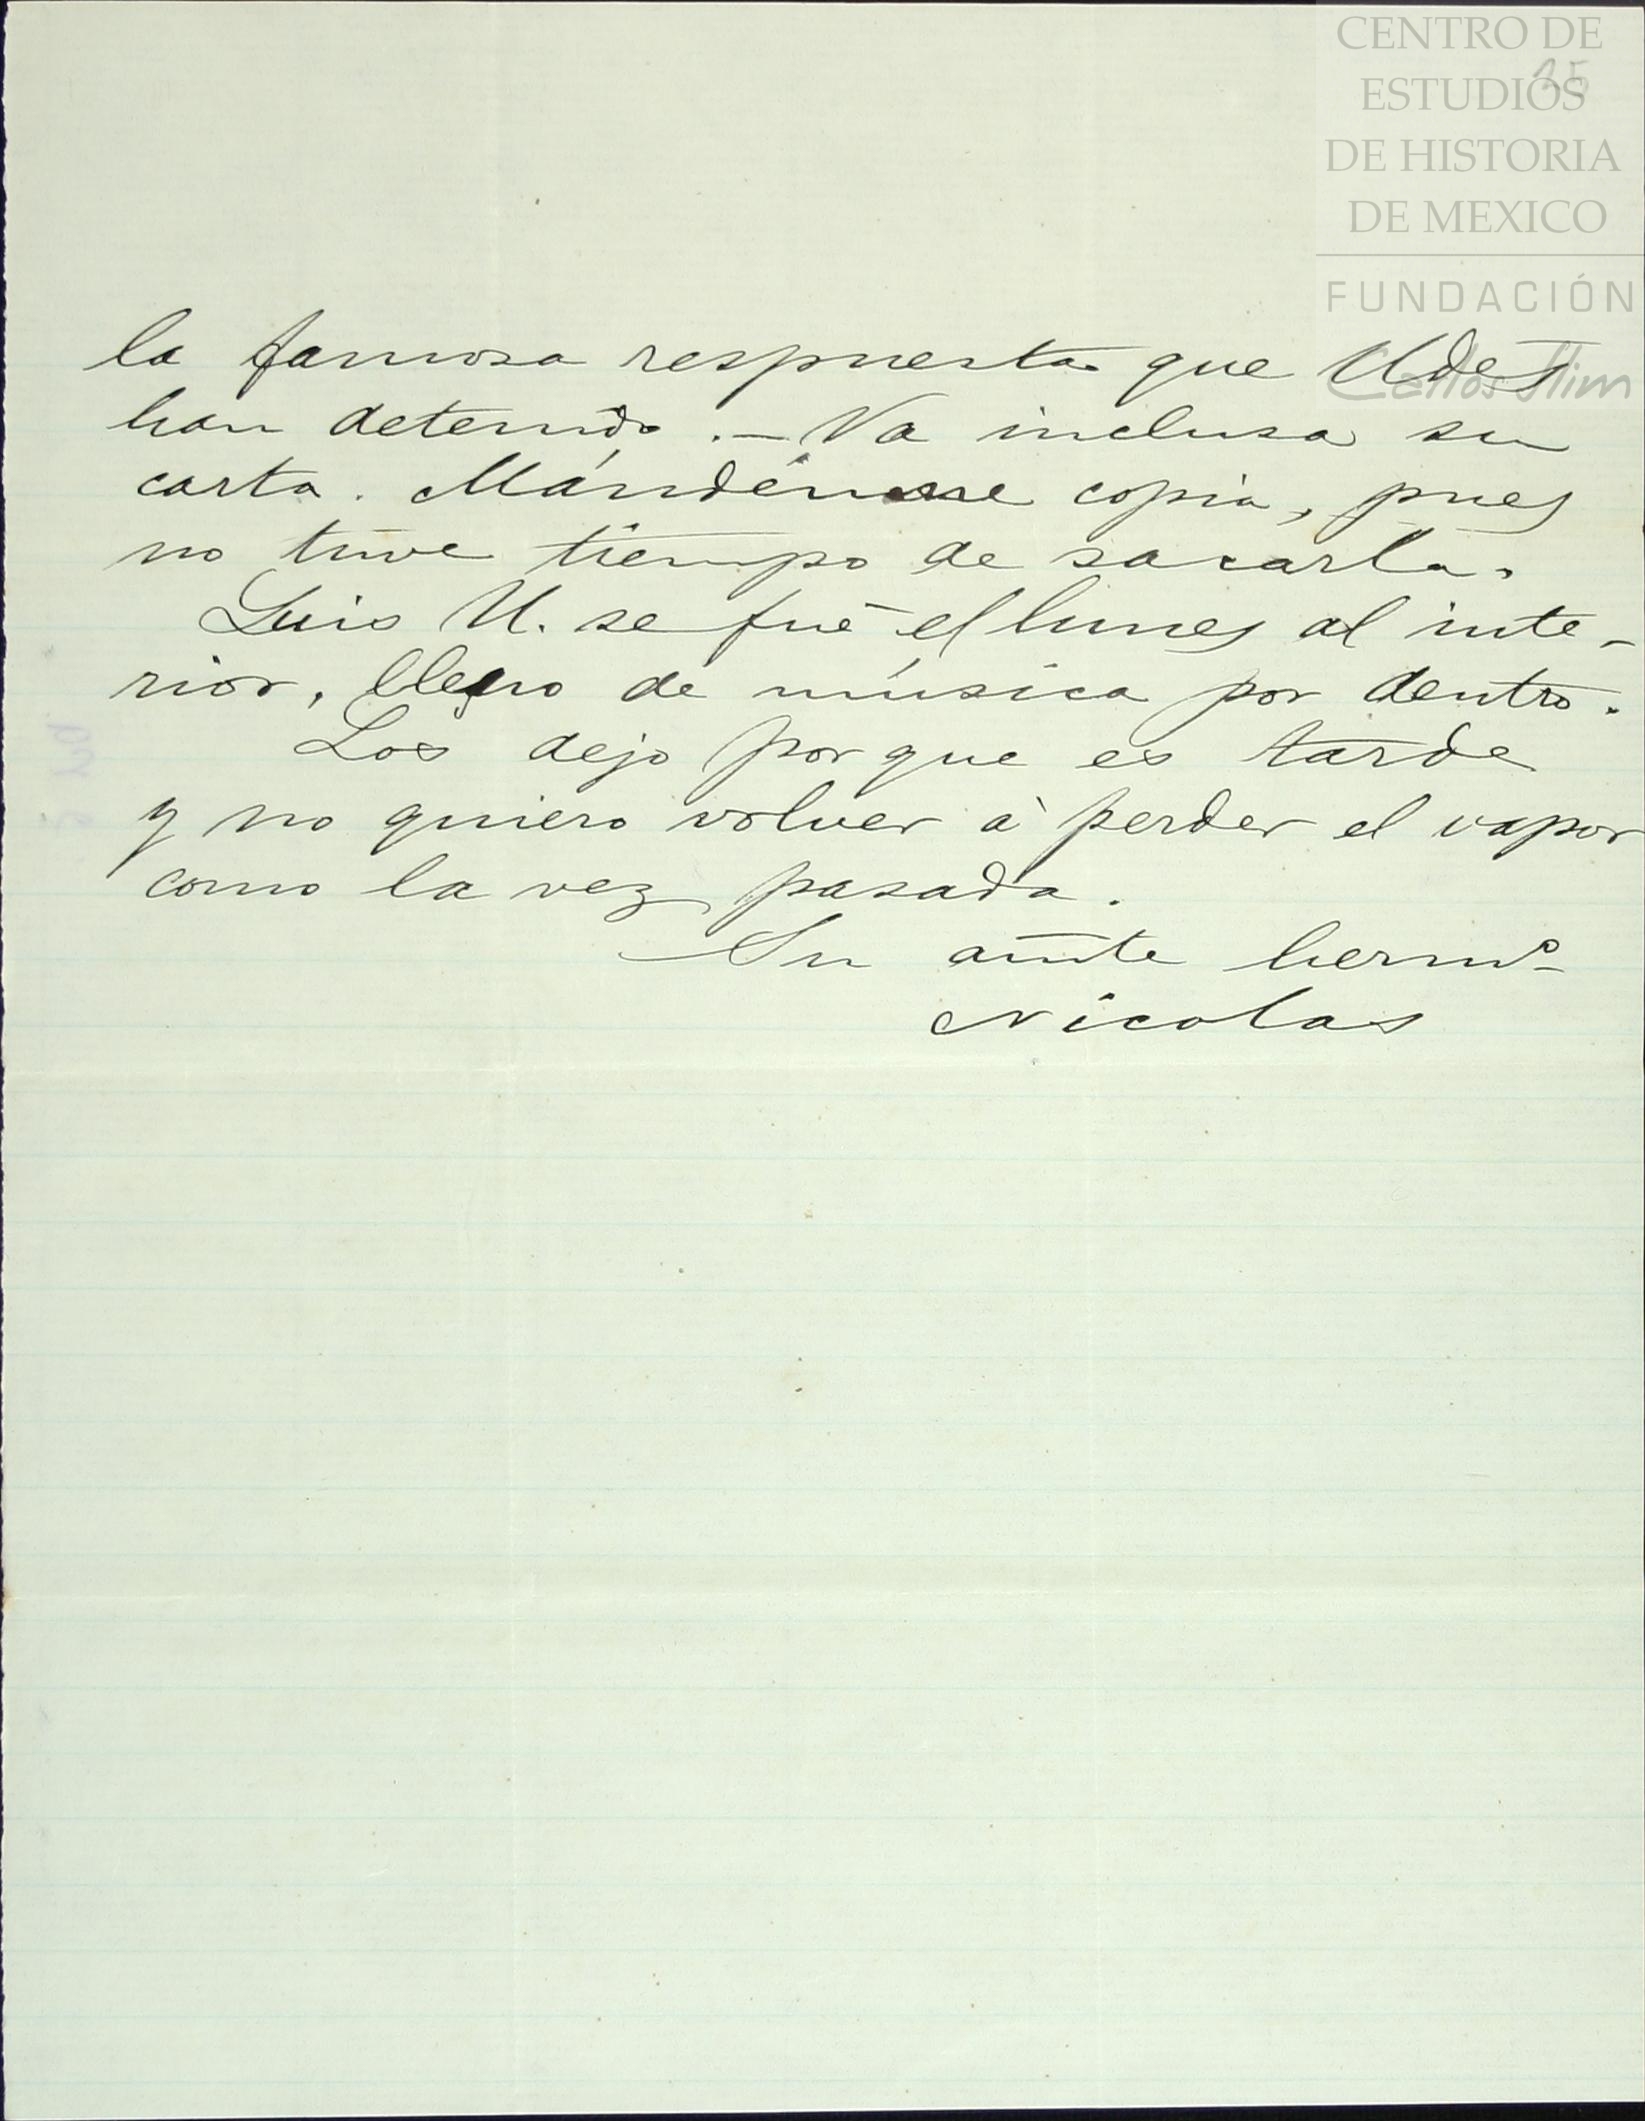 CENTRO DE
ESTUDIOS
DE HISTORIA
DE MEXICO
FUNDACIÓN
Carlos Slim
25
la famosa respuesta que Udes
han detenido. — Va inclusa su
carta. Mándenme copia, pues
no tuve tiempo de sacarla.
Luis U. se fué el lunes al inte-
rior, lleno de música por dentro.
Los dejo porque es tarde
y no quiero volver à perder el vapor
como la vez pasada.
Su amte hermo
Nicolas